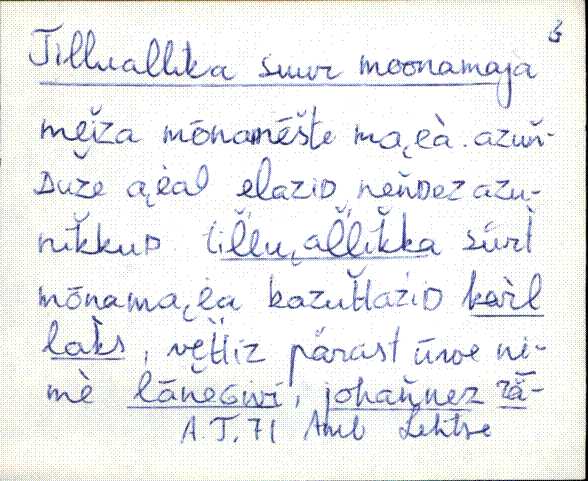 6
Tilluallika suur moonamaja
mei̬za mōnamēšte ma̬eà. azuň-
Duze a̬èal elaziD neňDez azu-
nikkuD. tillu̬allikka sūrt
mōnama̬èa kazuttaziD kàrl
laks, vettiz pärast ūwe ni-
mè lāneGivi, johaňnez rā-
A.T. 71 Amb Lehtse